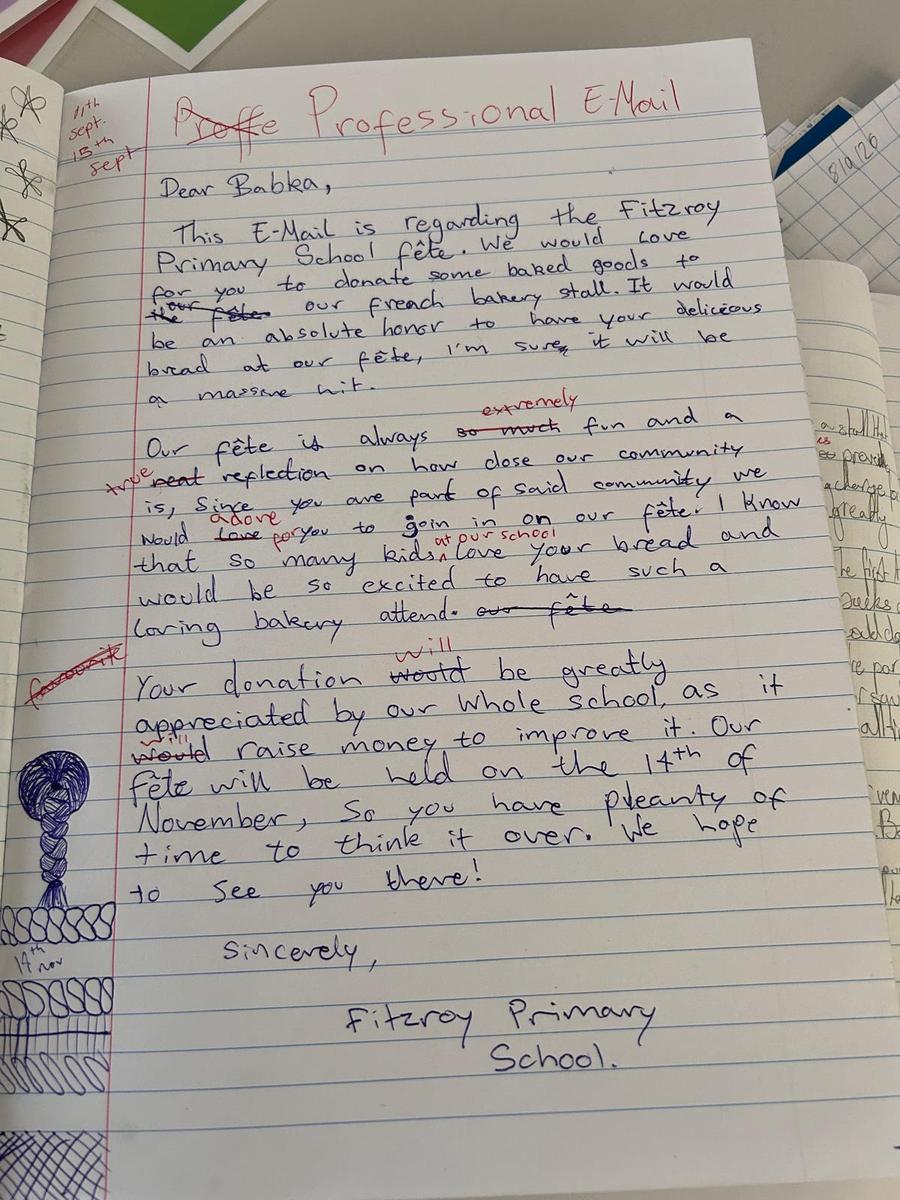 11th
sept.
15th
sept
Proffe Professional E-Mail
Dear Babka,
This E-Mail is regarding the Fitzroy
Primary School fête. We would love
for you to donate some baked goods to
the our fête our freach bakery stall. It would
be an absolute honor to have your delicious
bread at our fête, I'm sure, it will be
a massive hit.
extremely
Our fête is always so much fun and a
true neat reflection on how close our community
is, Since you are part of said community we
adore
would love for you to goin in on our fête. I know
at our school
that so many kids love your bread and
would be so excited to have such a
loving bakery attend. our fête
favourite
will
Your donation would be greatly
appreciated by our whole school, as it
will
would raise money to improve it. Our
fête will be held on the 14th of
November, so you have pleanty of
time to think it over. We hope
to see you there!
Sincerely,
Fitzroy Primary
School.
14th
nov
8/9/26
a stall that
is
greatly